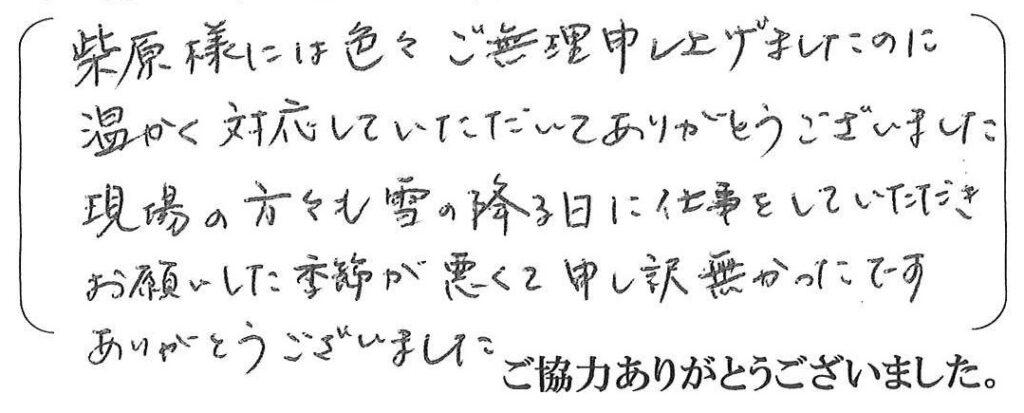 柴原様には色々ご無理申し上げましたのに
温かく対応していただいてありがとうございました
現場の方々も雪の降る日に仕事をしていただき
お願いした季節が悪くて申し訳無かったです
ありがとうございました
ご協力ありがとうございました。